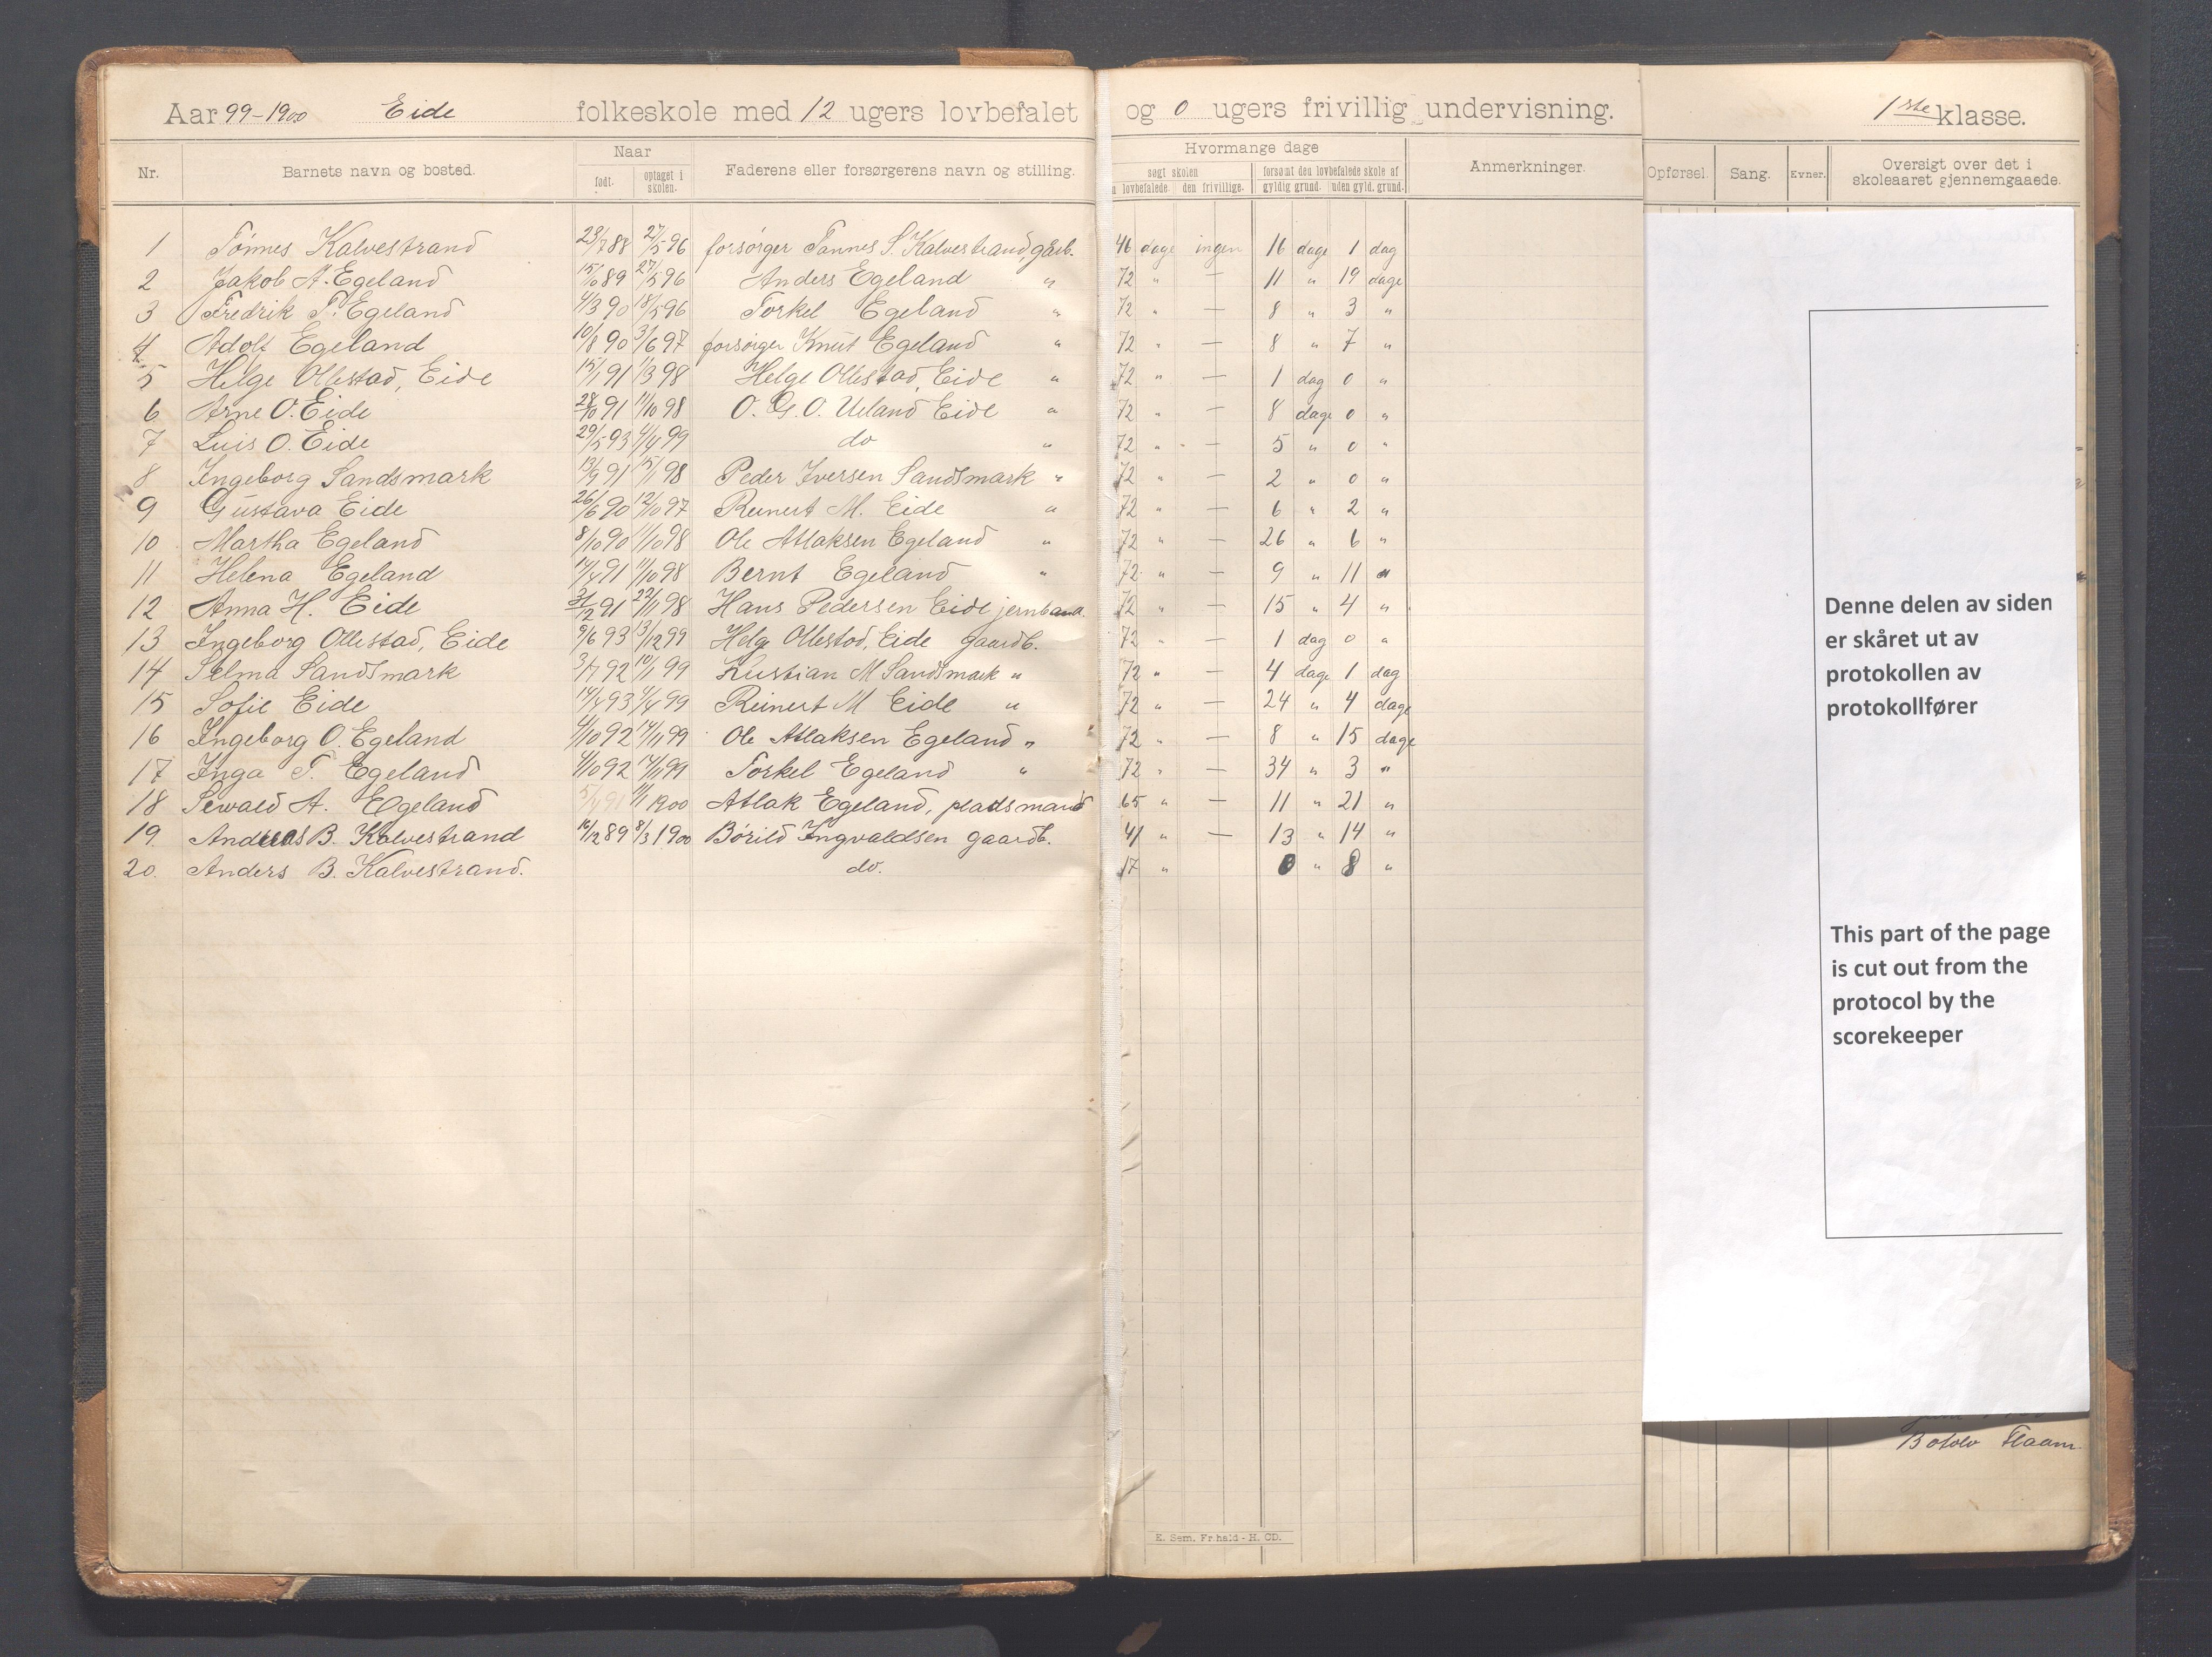 Aar 99-1900 Eide folkeskole med 12 ugers lovbefalet og 0 ugers frivillig undervisning. 1ste klasse.
Nr. Barnets navn og bosted. Naar født. optaget i skolen. Faderens eller forsørgerens navn og stilling. Hvormange dage søgt skolen n lovbefalede. den frivillige. forsømt den lovbefalede skole af gyldig grund. uden gyld. grund. Anmerkninger. Opførsel. Sang. Evner. Oversigt over det i skoleaaret gjennemgaaede.
1 Tönnes Kalvestrand 23/7 88 27/5 96 forsörger Tönnes S. Kalvestrand, gaarb. 46 dage ingen 16 dage 1 dag
2 Jakob A. Egeland 15/10 89 27/5 96 Anders Egeland " 72 " — 11 " 19 dage
3 Fredrik T. Egeland 4/3 90 18/5 96 Torkel Egeland " 72 " — 8 " 3 "
4 Adolf Egeland 10/8 90 3/6 97 forsörger Knut Egeland " 72 " — 8 " 7 "
5 Helge Ollestad, Eide 15/1 91 1/3 98 Helge Ollestad, Eide " 72 " — 1 dag 0 "
6 Arne O. Eide 28/10 91 11/10 98 O. G. O. Ueland Eide " 72 " — 8 dage 0 "
7 Luis O. Eide 29/5 93 4/4 99 do " 72 " " — 5 " 0 "
8 Ingeborg Sandsmark 13/9 91 15/1 98 Peder Iversen Sandsmark " 72 " — 2 " 0 "
9 Gustava Eide 26/6 90 12/10 97 Reinert M. Eide " 72 " — 6 " 2 "
10 Martha Egeland 8/10 90 11/10 98 Ole Atlaksen Egeland " 72 " — 26 " 6 "
11 Helena Egeland 14/4 91 11/10 98 Bernt Egeland " 72 " — 9 " 11 "
12 Anna H. Eide 31/12 91 22/11 98 Hans Pedersen Eide jernband. 72 " — 15 " 4 "
13 Ingeborg Ollestad, Eide 9/6 93 13/12 99 Helge Ollestad, Eide gaardb. 72 " — 1 dag 0 "
14 Selma Sandsmark 3/7 92 10/1 99 Kristian M Sandsmark " 72 " — 4 dage 1 dag
15 Sofie Eide 14/4 93 4/4 99 Reinert M Eide " 72 " — 24 " 4 dage
16 Ingeborg O. Egeland 4/10 92 14/11 99 Ole Atlaksen Egeland " 72 " — 8 " 15 dage
17 Inga T. Egeland 4/10 92 14/11 99 Torkel Egeland " 72 " — 34 " 3 "
18 Sewald A. Egeland 5/4 91 1900 Atlak Egeland, pladsmand 65 " — 11 " 21 "
19. Andreas B. Kalvestrand 16/12 89 8/3 1900 Börild Ingvaldsen gaardb. 41 " — 13 " 14 "
20. Anders B. Kalvestrand. do. 17 " 0 " 8 "
Denne delen av siden
er skåret ut av
protokollen av
protokollfører
This part of the page
is cut out from the
protocol by the
scorekeeper
Botolv Flaam
E. Sem, Fr.hald - H. CD.